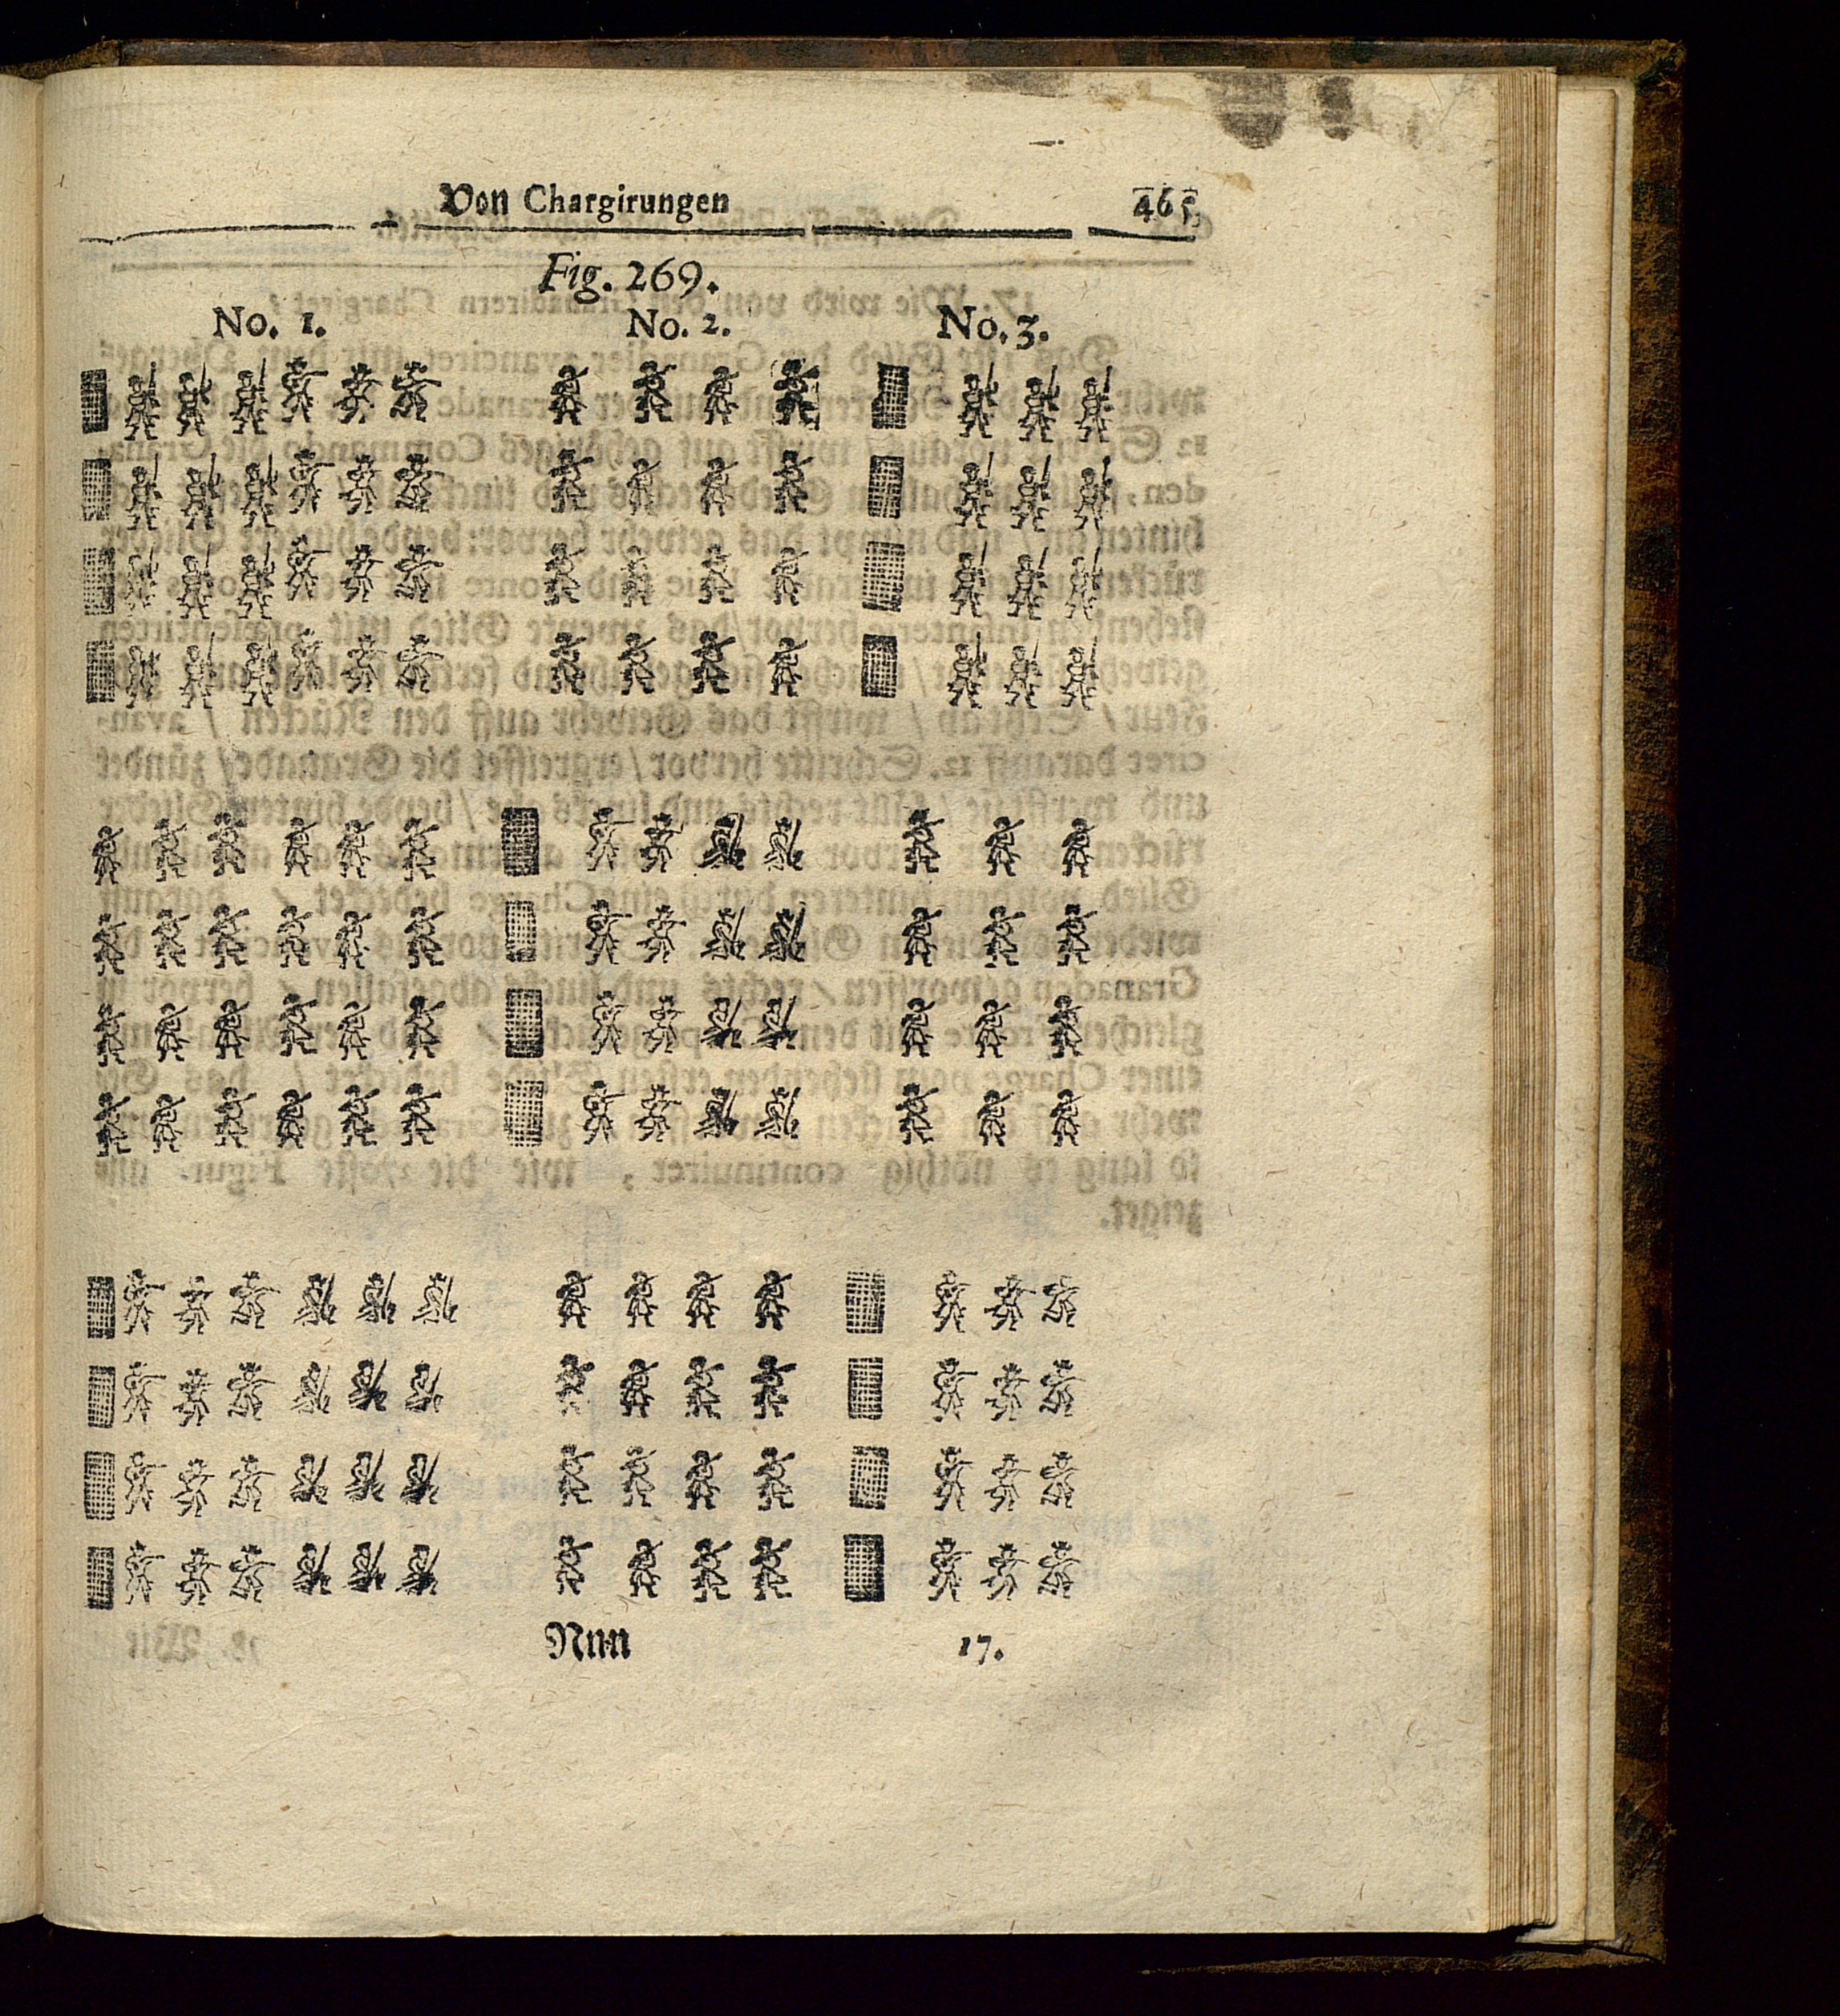 Von Chargirungen 465
Fig. 269.
No. 1. No. 2. No. 3.
Nnn 17.